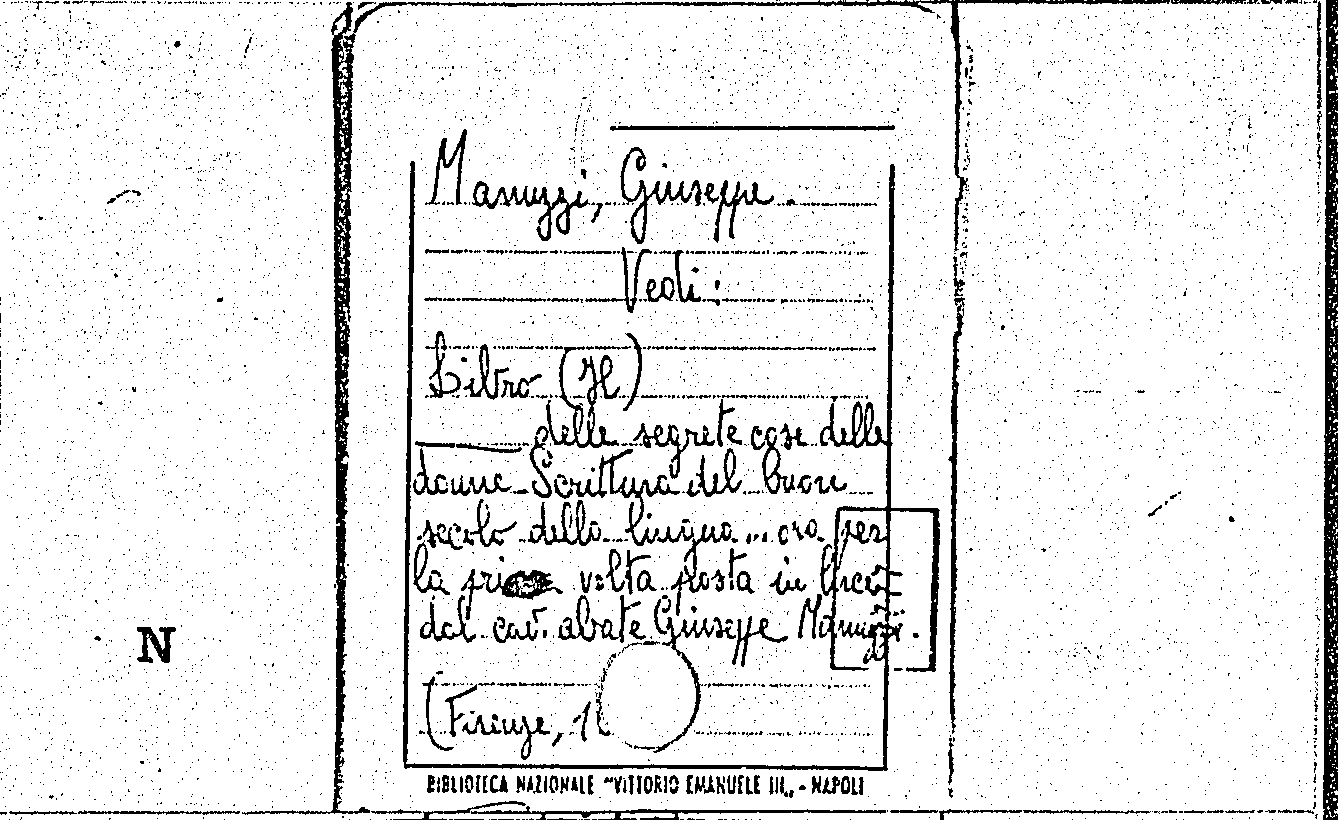 Manuzzi, Giuseppe.
Vedi:
Libro (Il)
delle segrete cose delle
donne Scrittura del buon
secolo della lingua... ora per
la prima volta posta in luce
dal cav. abate Giuseppe Manuzzi.
(Firenze, 1
N
BIBLIOTECA NAZIONALE "VITTORIO EMANUELE III„ - NAPOLI